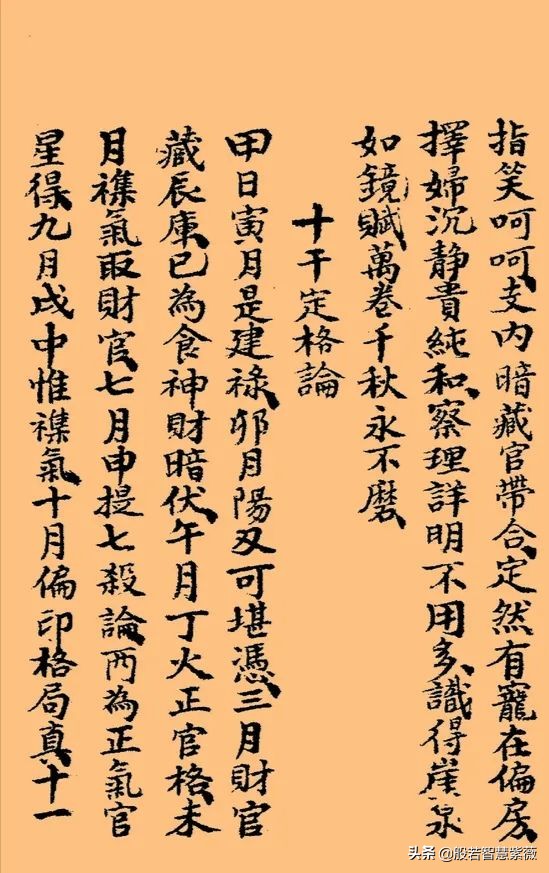 指笑呵呵支内暗藏官帶合定然有寵在偏房
擇婦沉静貴純和察理詳明不用多識得崖泉
如鏡賦萬卷千秋永不磨
十干定格論
甲日寅月是建禄卯月陽刄可堪憑三月財官
藏辰庫巳為食神財暗伏午月丁火正官格未
月襍氣取財官七月申提七殺論酉為正氣官
星得九月戌中惟襍氣十月偏印格局真十一
头条 @般若智慧紫薇